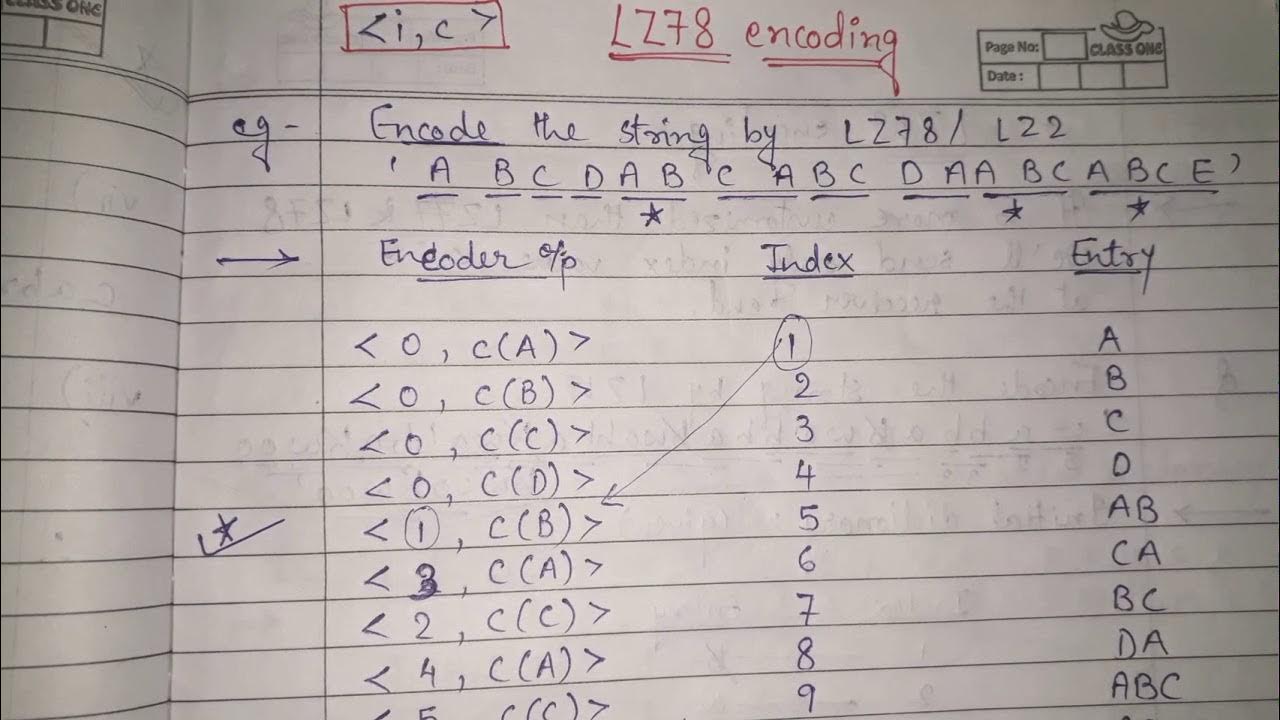 <i, c> LZ78 encoding
Page No: CLASS ONE
Date:
eg - Encode the string by LZ78 / LZ2
' A B C D A B C A B C D A A B C A B C E '
* * *
→ Encoder o/p Index Entry
< 0 , C(A) > 1 A
< 0 , C(B) > 2 B
< 0 , C(C) > 3 C
< 0 , C(D) > 4 D
* < 1 , C(B) > 5 AB
< 3 , C(A) > 6 CA
< 2 , C(C) > 7 BC
< 4 , C(A) > 8 DA
< 5 , C(C) > 9 ABC